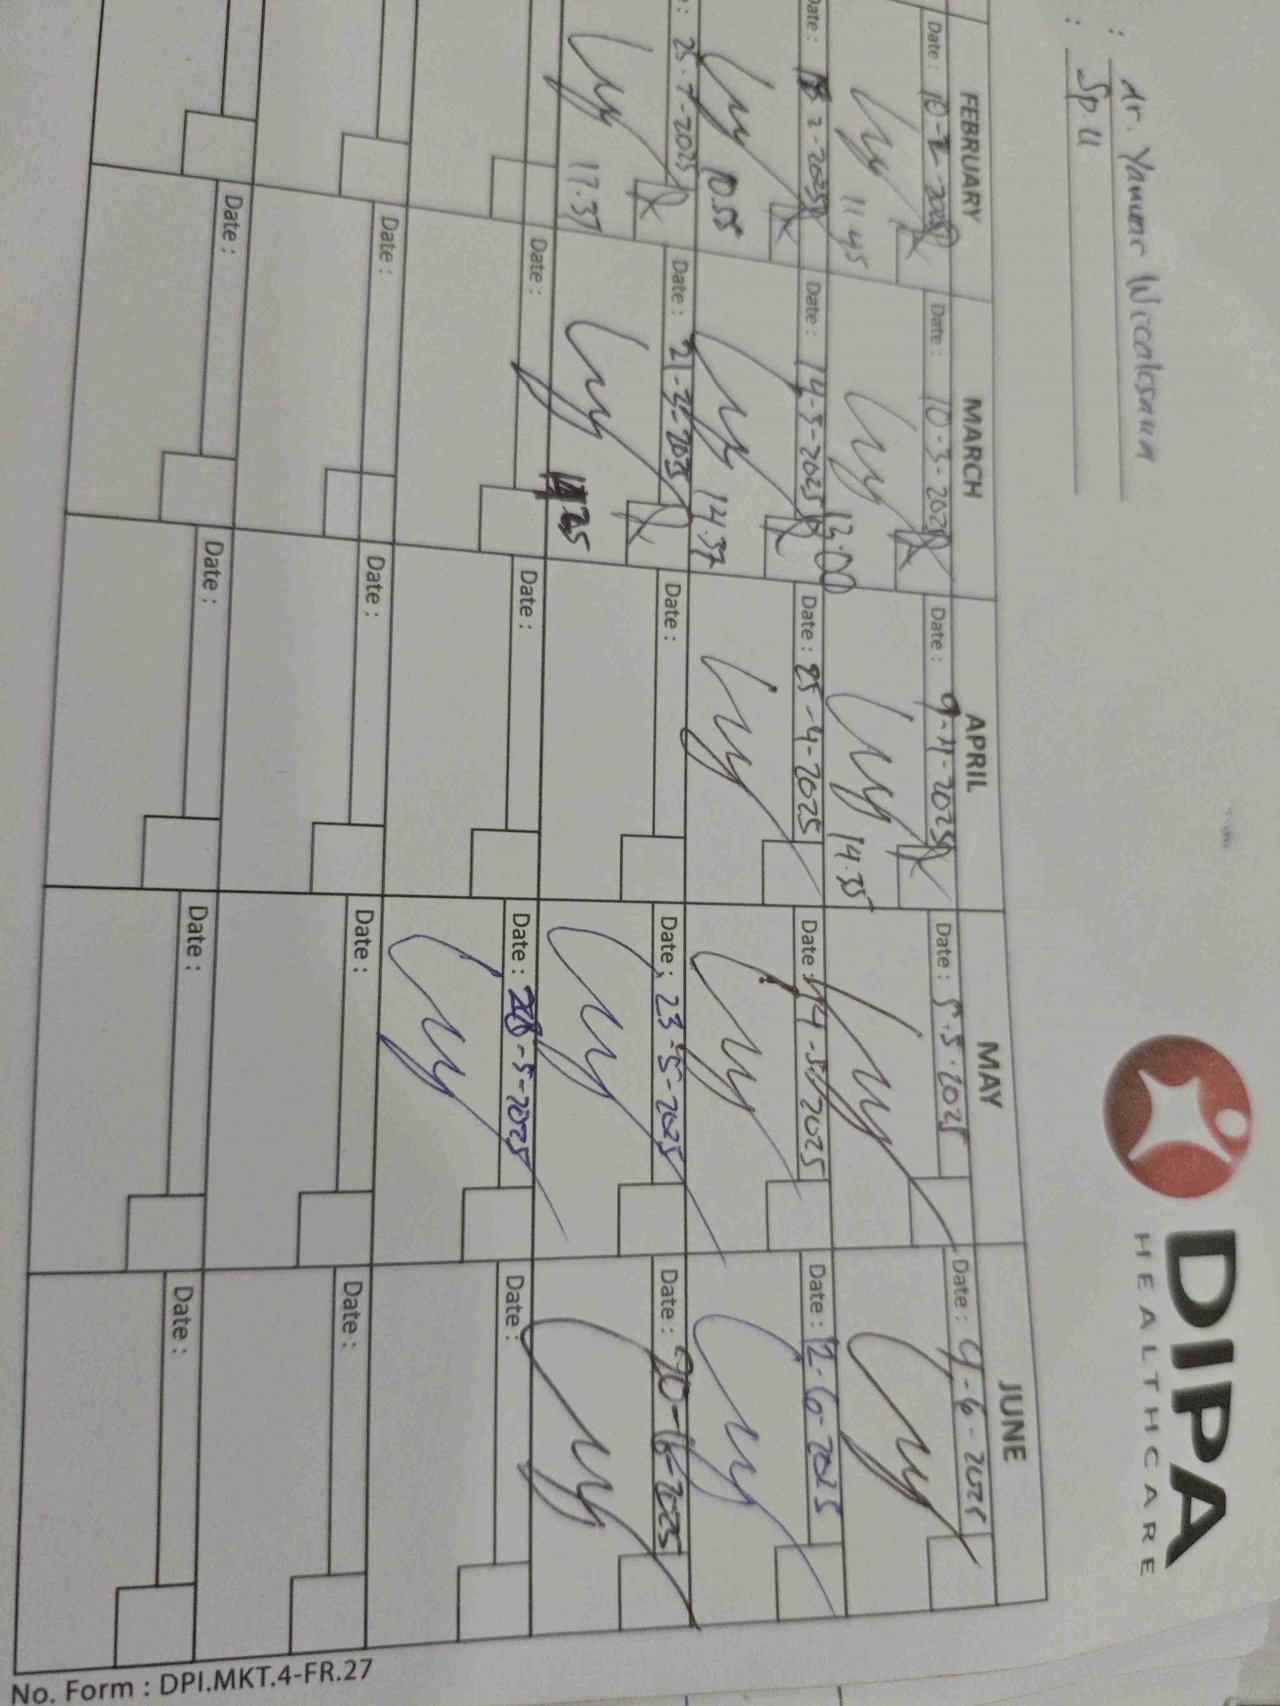 DIPA
HEALTHCARE
: dr. Yanuar
: Sp.U
FEBRUARY MARCH APRIL MAY JUNE
Date : 10-2-2025 Date : 10-3-2025 Date : 9-4-2025 Date : 5.5.2025 Date : 9-6-2025
11.45 13.00 14.35
Date : 2-2025 Date : 14-3-2025 Date : 25-4-2025 Date : 14-5-2025 Date : 12-6-2025
10.55 14.37
25- -2025 Date : 21-3-2025 Date : Date : 23-5-2025 Date : 20-6-2025
17.37 25
Date : Date : Date : 28-5-2025 Date :
Date : Date : Date : Date :
Date : Date : Date : Date :
No. Form : DPI.MKT.4-FR.27